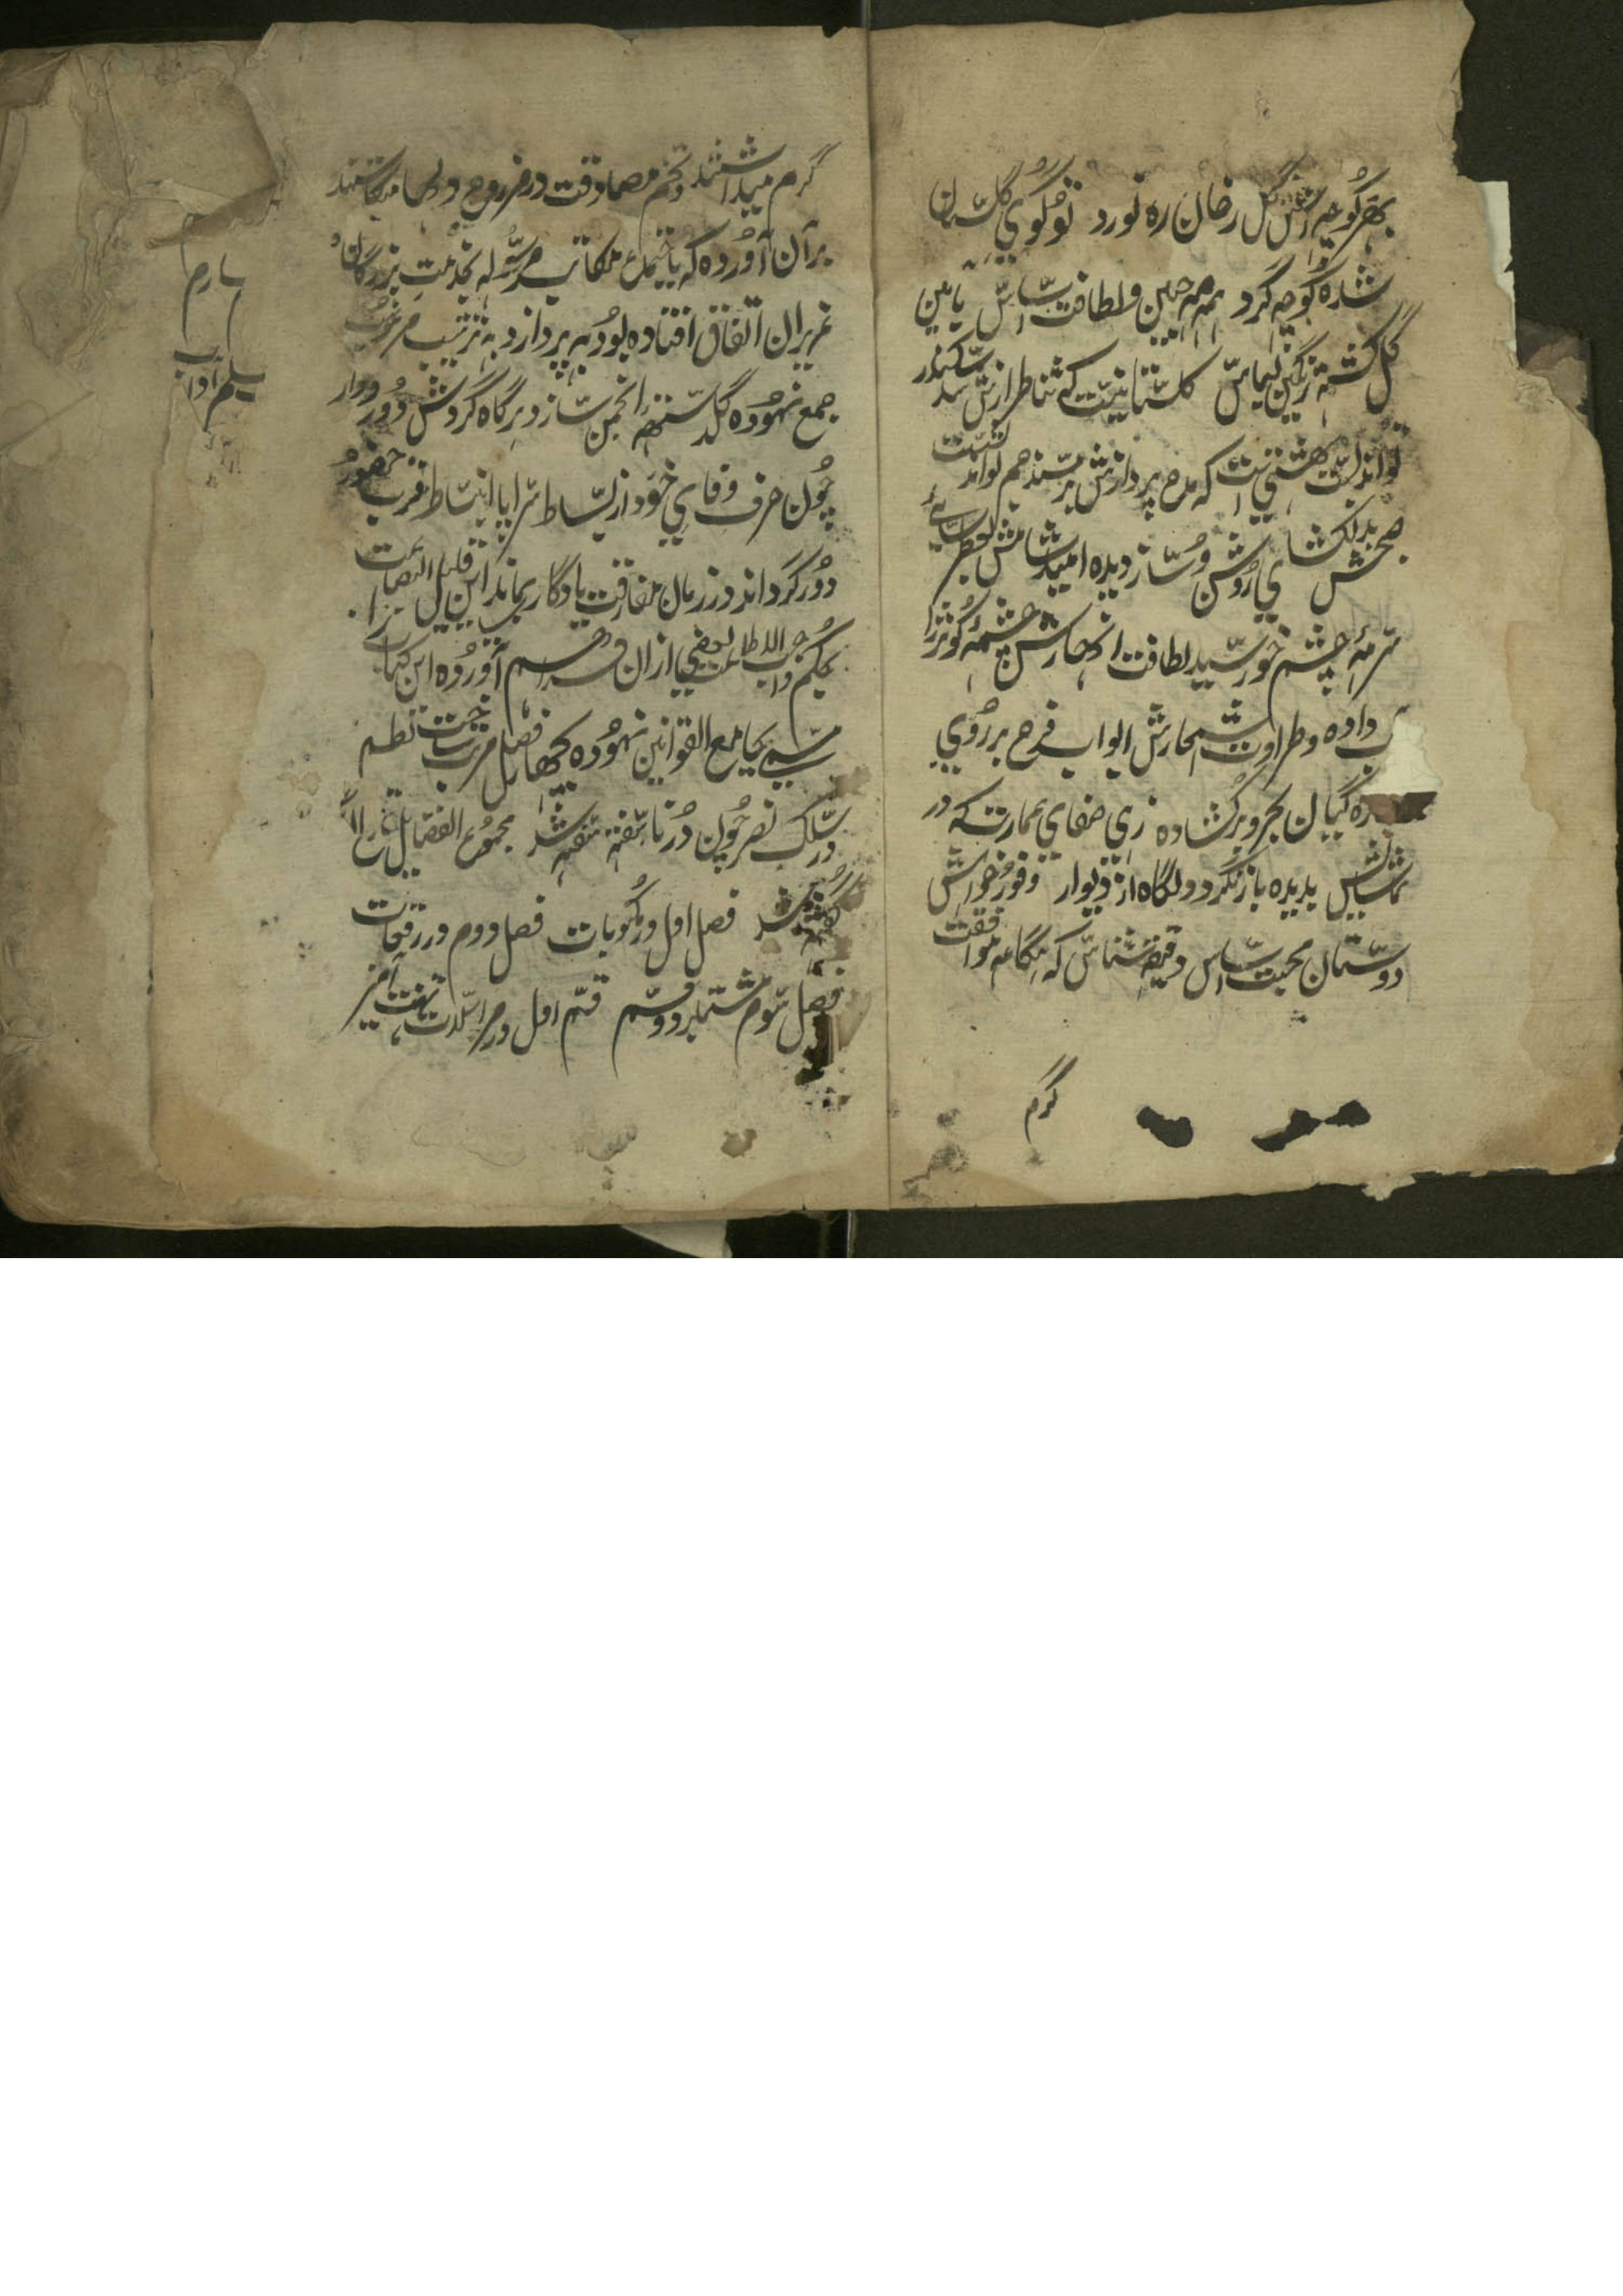 بهر کوچه اش گل رخان ره نورد تو گوی گلستان
شده کوچه گرد همه مه جبین و لطافت اساس یاسمین
گل گشته رنگین لباس گلستانیست که شاطر ازش سکندر
تواند بست بهشتی است که مدح پردازش بر سند جم تواند نشست
صبحش بدلکشای روشن ساز دیده امید شامش بعطر سای
سرمه چشم خورشید لطافت انهارش چشمه کوثر را
داده و طراوت اشجارش ابواب فرح بر روی
گیان بحر و بر گشاده زهی صفای عمارت که در
تماشایش بدیده باز نگردد و نگاه از دیوار وفور خواهش
دوستان محبت اساس دقیقه شناس که هنگامه موافقت
گرم
گرم میداشتند و تخم مصادقت در مزرع روح و دلها میکاشتند
بر آن آورده که یا خیلی مکاتب مرسوله بخدمت بزرگان و
عزیزان اتفاق افتاده بود به پردازد به ترتیب مرغوب
جمع نموده گلدسته انجمن سازد هرگاه گردش دور دوار
چون حرف وفای خود از بساط سراپا انبساط قرب حضور
دور گرداند در زمان مفارقت یادگاری بماند این قلیل البضاعت نیز
بحکم واجب الاطاعت بعضی از آن فراهم آورده این کتاب را
مسمی بجامع القوانین نموده بچهار فصل مرتب ساخت نظم
در سلک نصر چون در ناسفته سفته شد مجموع الفضایل تاریخ
گفته شد فصل اول در مکتوبات فصل دوم در رقعات
فصل سوم مشتمل بر دو قسم قسم اول در مراسلات تهنیت آمیز
سلم آداب